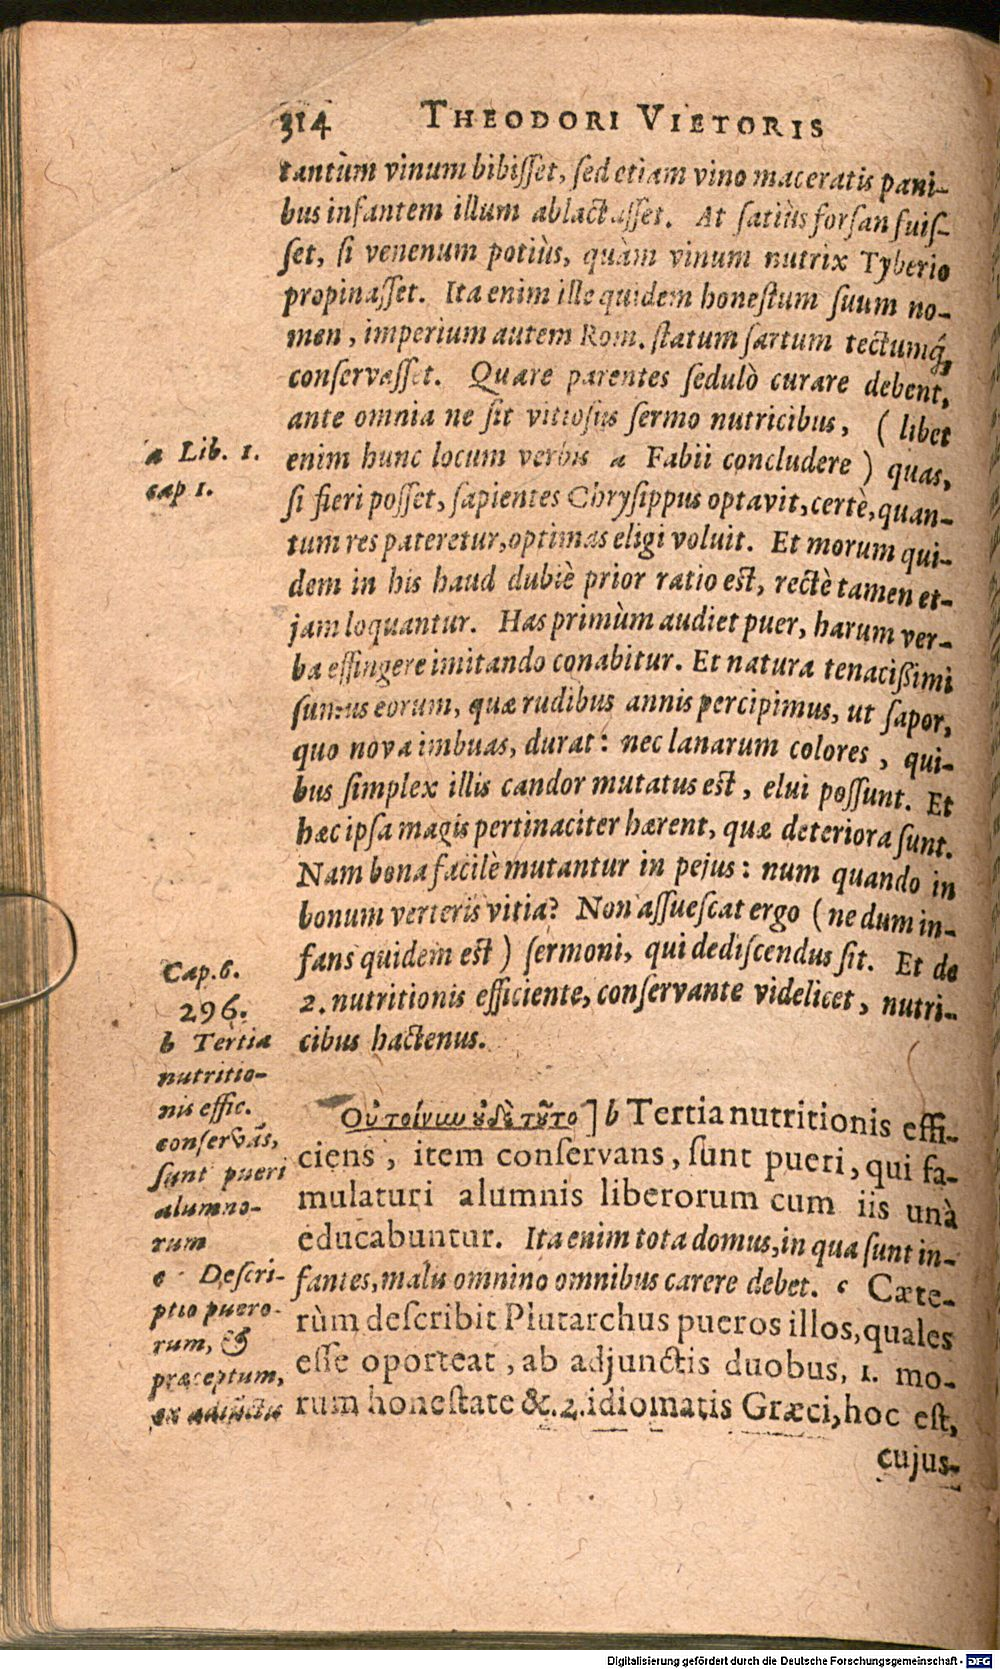 314 THEODORI VIETORIS
tantùm vinum bibiſſet, ſed etiam vino maceratis pani-
bus infantem illum ablactaſſet. At ſatiùs forſan fuiſ-
ſet, ſi venenum potiùs, quàm vinum nutrix Tyberio
propinaſſet. Ita enim ille quidem honeſtum ſuum no-
men, imperium autem Rom. ſtatum ſartum tectumq́,
conſervaſſet. Quare parentes ſedulò curare debent,
ante omnia ne ſit vitioſus ſermo nutricibus, (libet
a Lib. 1.
cap 1.
enim hunc locum verbis a Fabii concludere) quas,
ſi fieri poſſet, ſapientes Chryſippus optavit, certè, quan-
tum res pateretur, optimas eligi voluit. Et morum qui-
dem in his haud dubiè prior ratio eſt, rectè tamen et-
jam loquantur. Has primùm audiet puer, harum ver-
ba effingere imitando conabitur. Et natura tenacißimi
ſumus eorum, quæ rudibus annis percipimus, ut ſapor,
quo nova imbuas, durat: nec lanarum colores, qui-
bus ſimplex illis candor mutatus eſt, elui poſſunt. Et
hæc ipſa magis pertinaciter hærent, quæ deteriora ſunt.
Nam bona facilè mutantur in pejus: num quando in
bonum verteris vitia? Non aſſueſcat ergo (ne dum in-
fans quidem eſt) ſermoni, qui dediſcendus ſit. Et de
2. nutritionis efficiente, conſervante videlicet, nutri-
cibus hactenus.
Cap. 6.
296.
b Tertia
nutritio-
nis effic.
conſervãs,
ſunt pueri
alumno-
rum
c Deſcri-
ptio puero-
rum, &
præceptum,
ex adiũctis
Οὐ τοίνυν ȣ̓δὲ τȣ̃το] b Tertia nutritionis effi-
ciens, item conſervans, ſunt pueri, qui fa-
mulaturi alumnis liberorum cum iis unà
educabuntur. Ita enim tota domus, in qua ſunt in-
fantes, malu omnino omnibus carere debet. c Cæte-
rùm deſcribit Plutarchus pueros illos, quales
eſſe oporteat, ab adjunctis duobus, 1. mo-
rum honeſtate &. 2. idiomatis Græci, hoc eſt,
cujus-
Digitalisierung gefördert durch die Deutsche Forschungsgemeinschaft - DFG